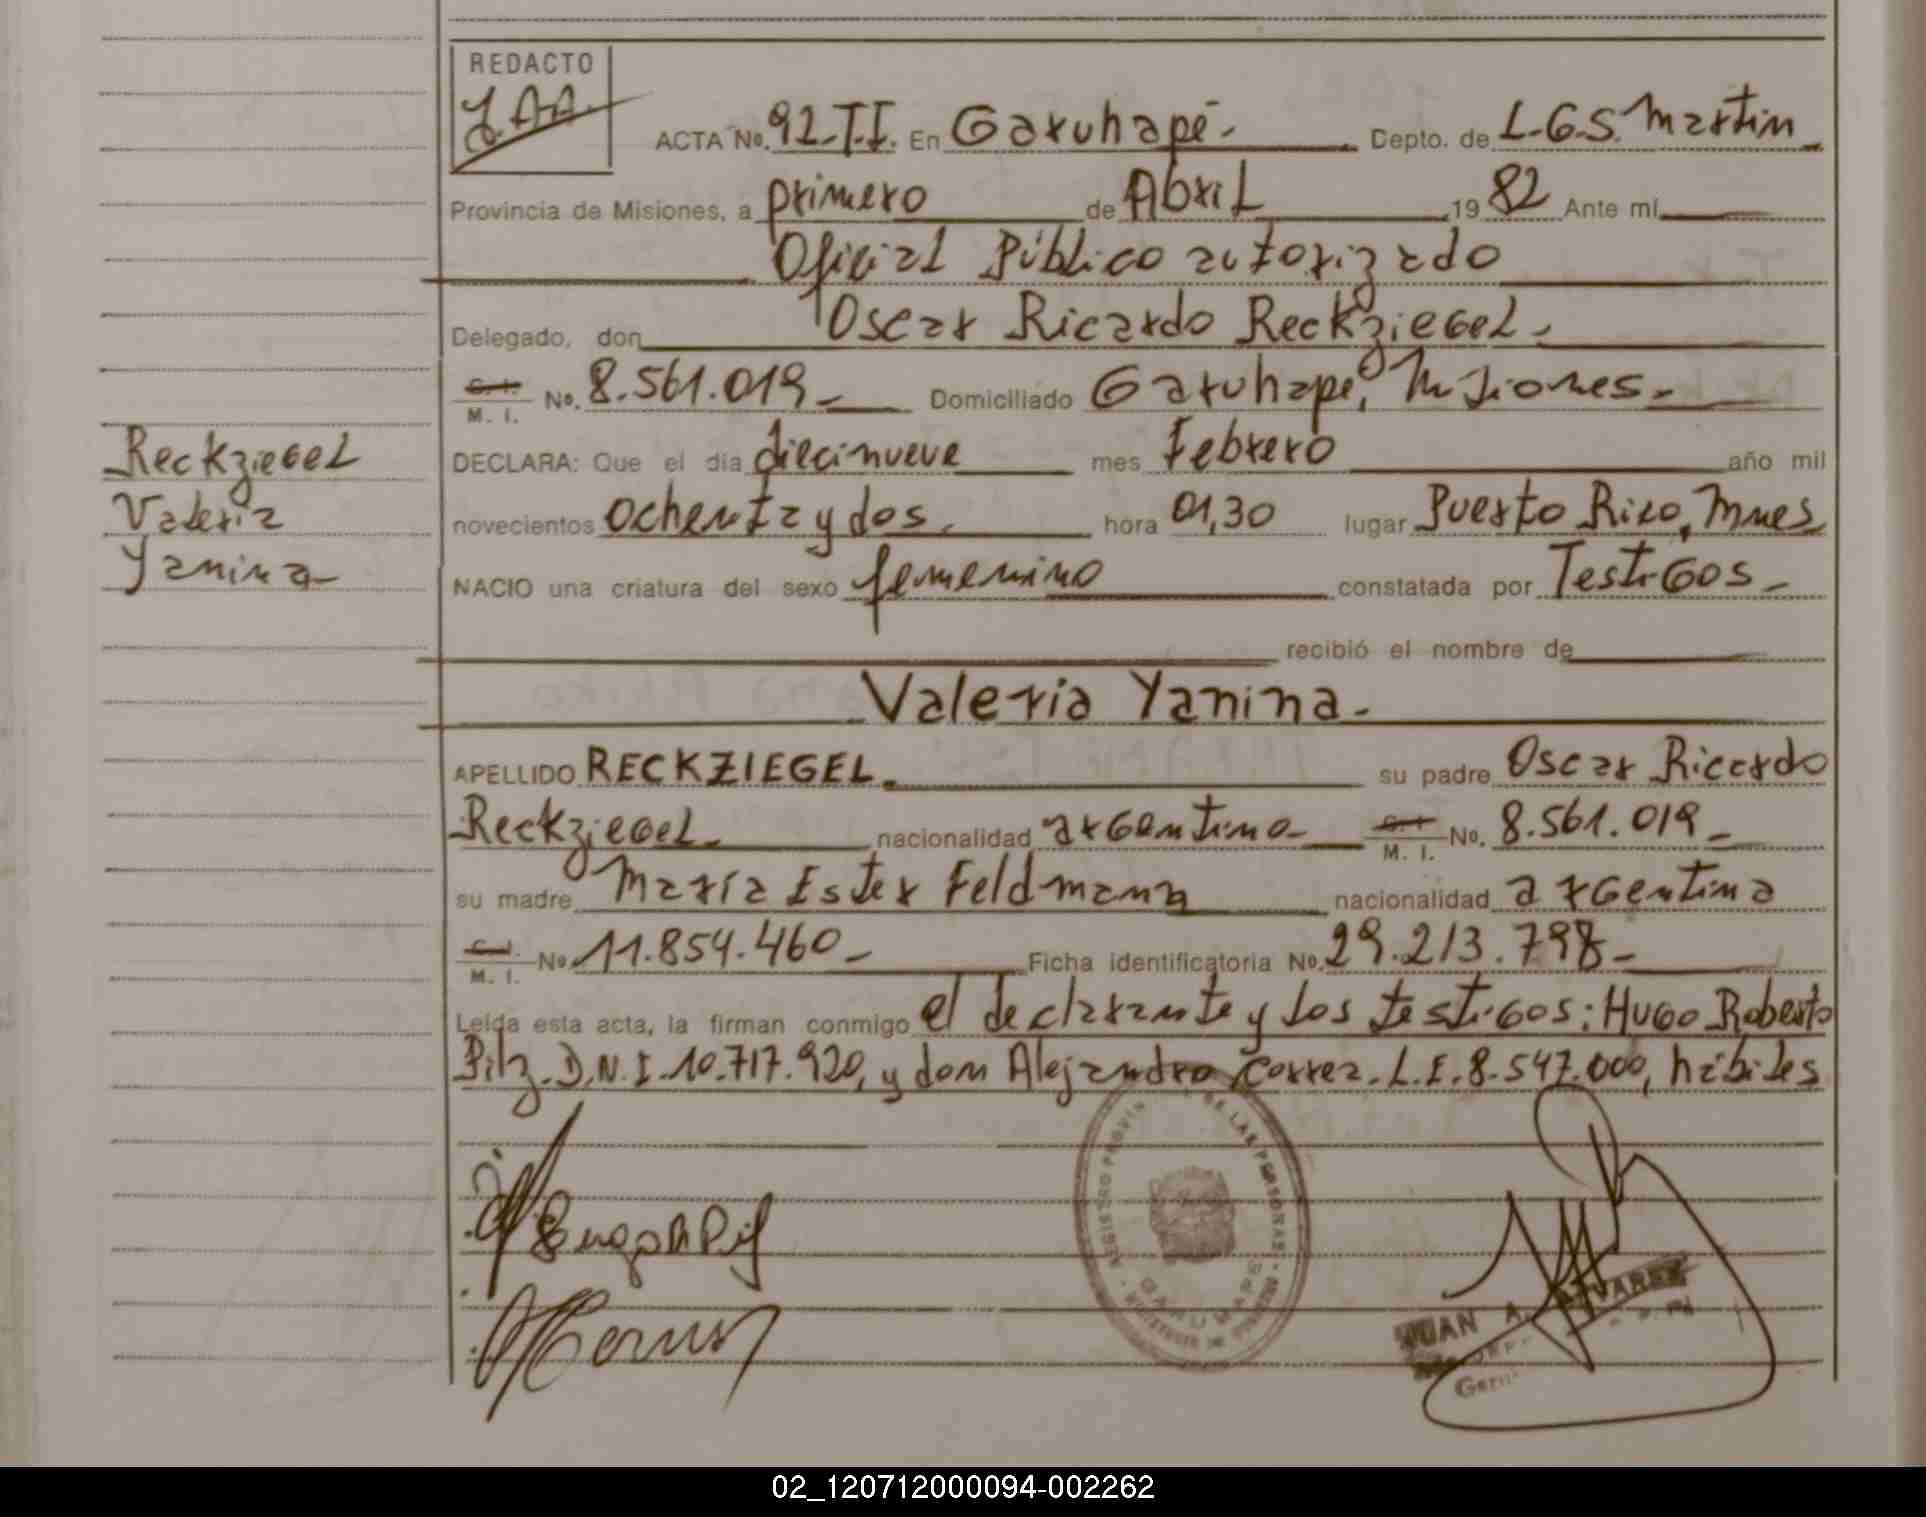 REDACTO
J.A.A.
ACTA Nº. 92-T.I. En Garuhapé.- Depto. de L.G.S. Martin
Provincia de Misiones, a primero de Abril 1982 Ante mí
Oficial Público autorizado
Delegado, don Oscar Ricardo Reckziegel.
C. I. M. I. Nº. 8.561.019 Domiciliado Garuhape, Misiones.-
DECLARA: Que el dia diecinueve mes Febrero año mil
novecientos ochenta y dos. hora 01,30 lugar Puerto Rico, Mnes
NACIO una criatura del sexo femenino constatada por Testigos-
recibió el nombre de
Valeria Yanina.-
APELLIDO RECKZIEGEL. su padre Oscar Ricardo
Reckziegel nacionalidad argentino- C. I. M. I. Nº. 8.561.019-
su madre María Ester Feldmann nacionalidad argentina
C. I. M. I. Nº 11.854.460- Ficha identificatoria Nº. 29.213.798-
Leída esta acta, la firman conmigo el declarante y los testigos: Hugo Roberto
Pilz. D.N.I. 10.717.920, y don Alejandro Correa. L.E. 8.547.000, hábiles
Reckziegel
Valeria
Yanina-
REGISTRO PROVIN DE LAS PERSONAS
GARUHAPE
JUAN A. ALVAREZ
02_120712000094-002262